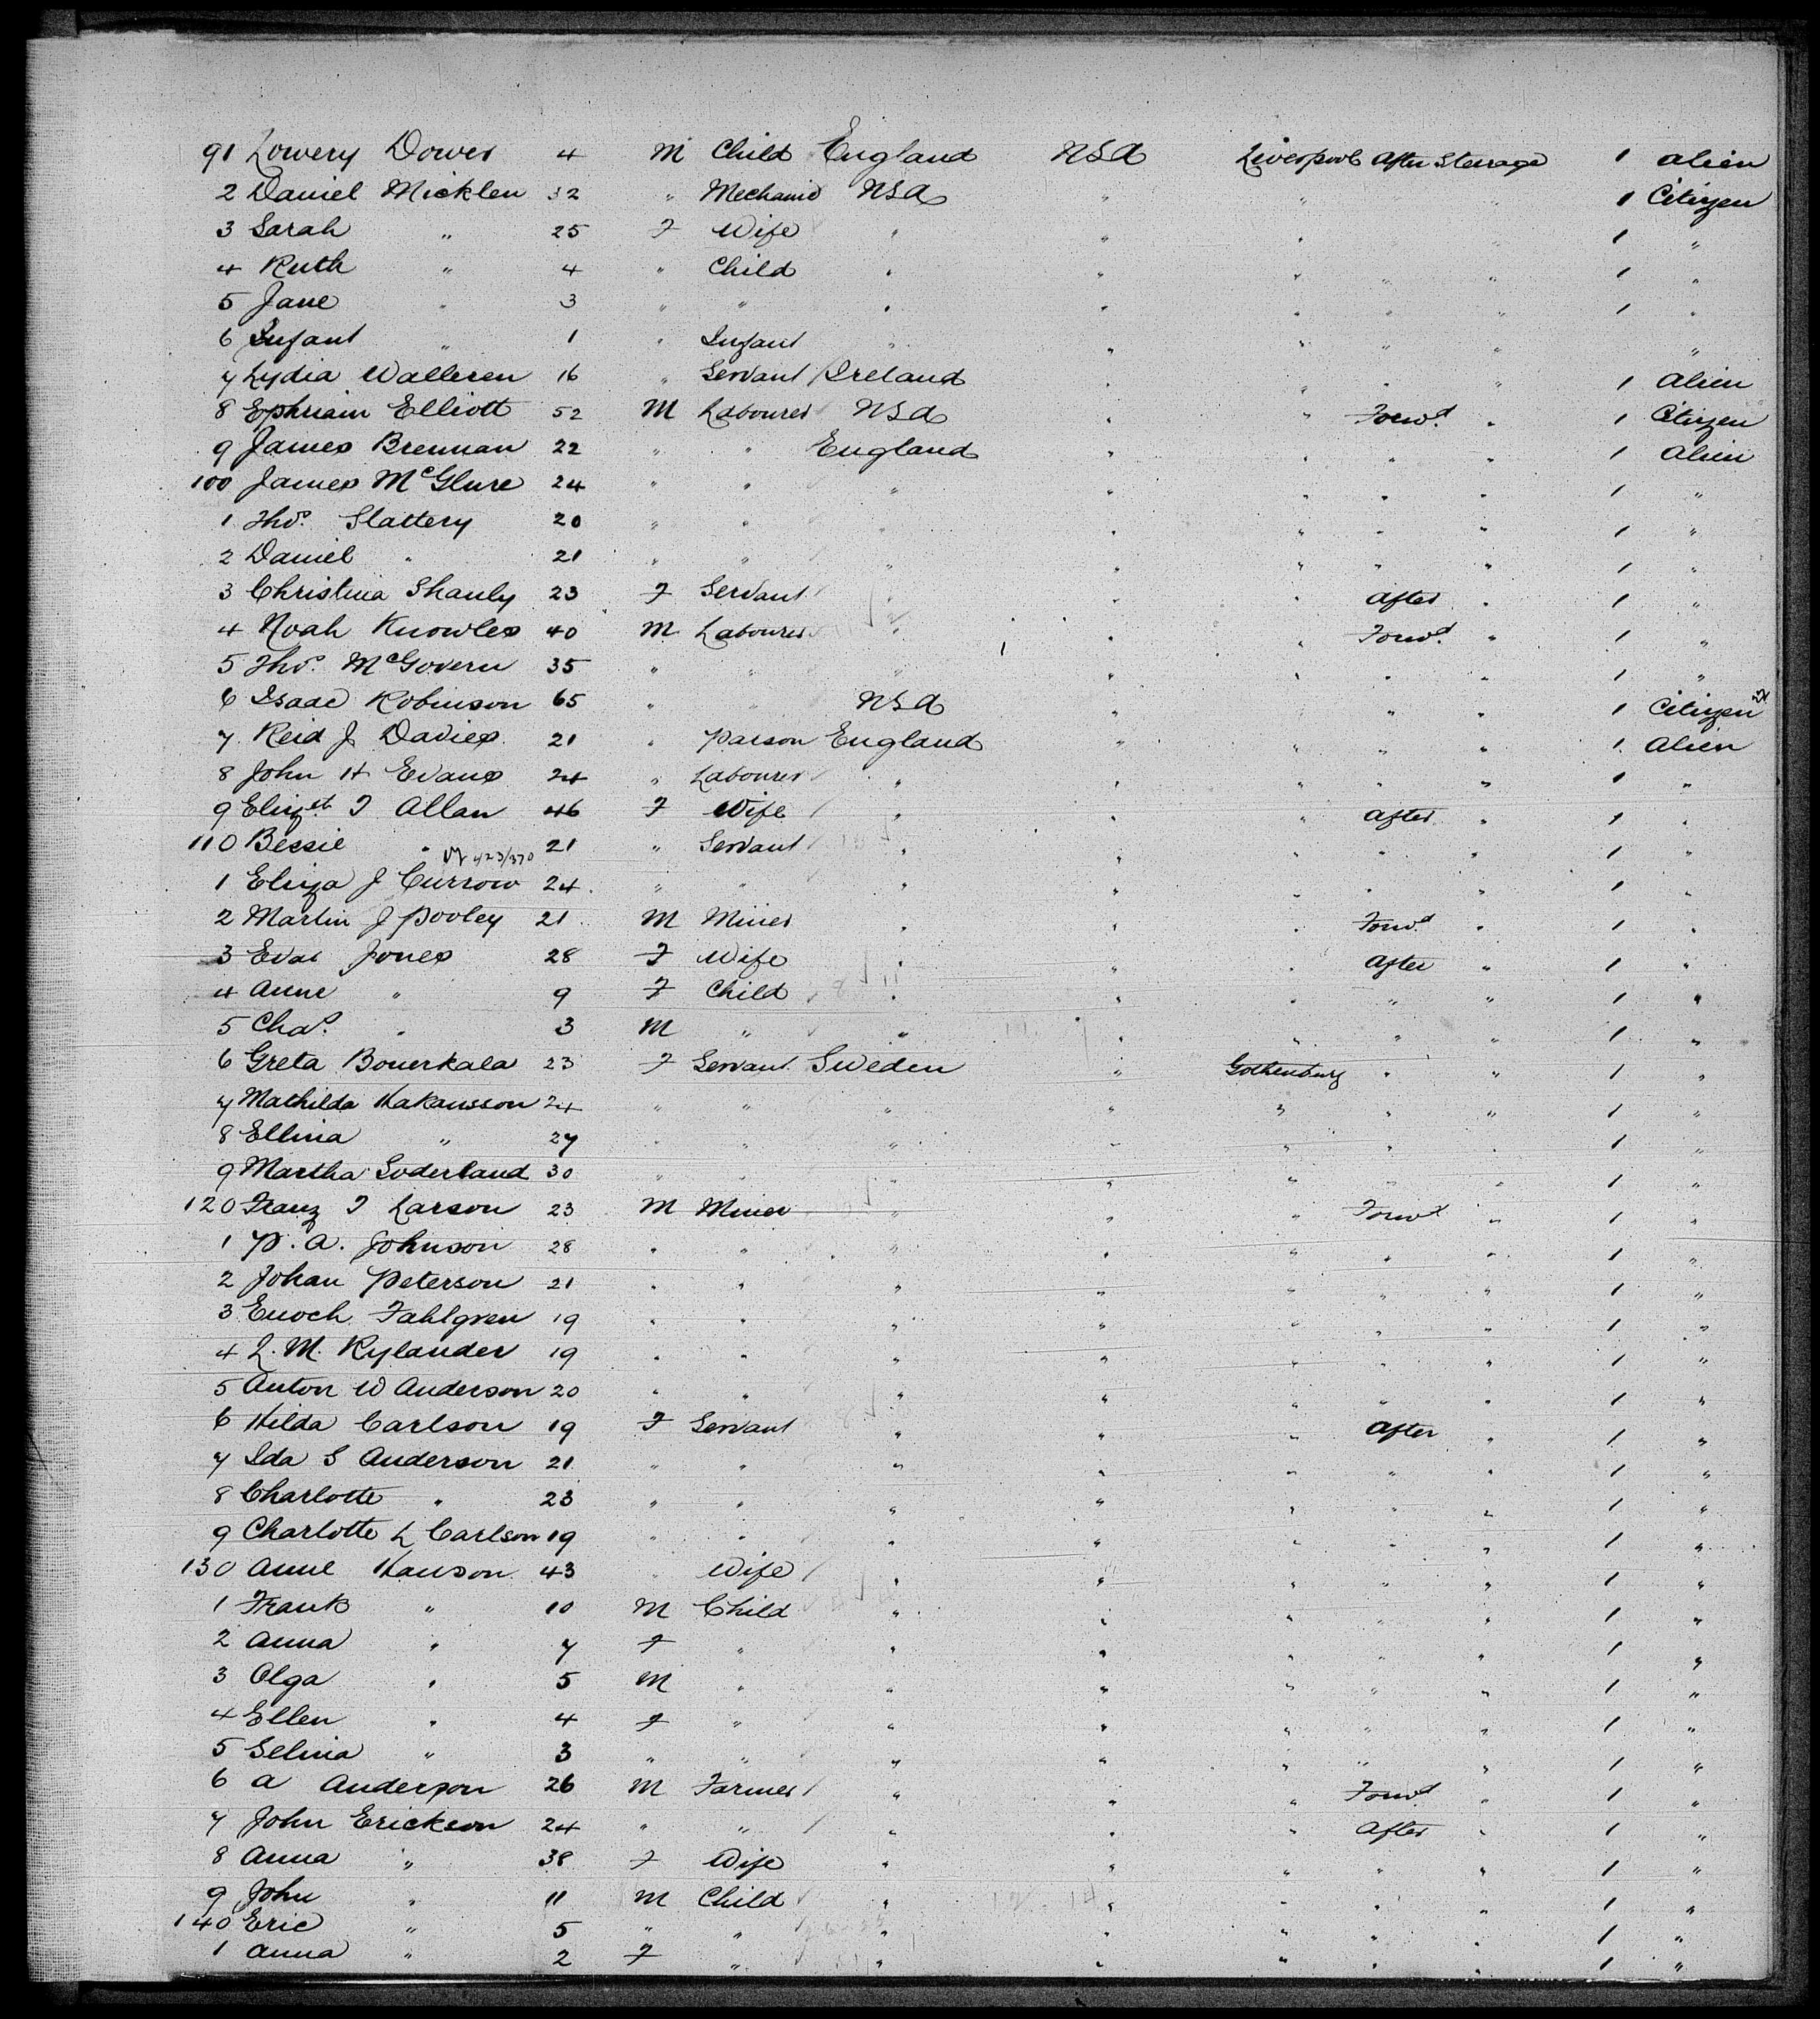 91 Lowery Dower 4 M Child England USA Liverpool After Steerage 1 Alien
2 Daniel Micklen 32 " Mechanic USA " " " " 1 Citizen
3 Sarah " 25 F Wife " " " " " 1 "
4 Ruth " 4 " Child " " " " " 1 "
5 Jane " 3 " " " " " " " 1 "
6 Infant " 1 " Infant " " " " " "
7 Lydia Walleren 16 " Servant Ireland " " " " 1 Alien
8 Ephriam Elliott 52 M Labourer USA " " Forwd. " 1 Citizen
9 James Brennan 22 " " England " " " " 1 Alien
100 James McGlure 24 " " " " " " " 1 "
1 Thos. Slattery 20 " " " " " " " 1 "
2 Daniel " 21 " " " " " " " 1 "
3 Christina Shanly 23 F Servant " " " After " 1 "
4 Noah Knowles 40 M Labourer " " " Forwd. " 1 "
5 Thos. McGovern 35 " " " " " " " 1 "
6 Isaac Robinson 65 " " USA " " " " 1 Citizen
7 Reid J Davies 21 " Parson England " " " " 1 Alien
8 John H Evans 24 " Labourer " " " " " 1 "
9 Elizth T Allan 46 F Wife " " " After " 1 "
110 Bessie " 21 " Servant " " " " " 1 "
423/370
1 Eliza J Currow 24 " " " " " " " 1 "
2 Martin J Pooley 21 M Miner " " " Forwd. " 1 "
3 Evar Jones 28 F Wife " " " After " 1 "
4 Anne " 9 F Child " " " " " 1 "
5 Chas. " 3 M " " " " " " 1 "
6 Greta Bouerkala 23 F Servant Sweden " Gothenburg " " 1 "
7 Mathilda Hakansson 24 " " " " " " " 1 "
8 Ellina " 27 " " " " " " " 1 "
9 Martha Soderland 30 " " " " " " " 1 "
120 Franz T Larson 23 M Miner " " " Forwd " 1 "
1 P. A. Johnson 28 " " " " " " " 1 "
2 Johan Peterson 21 " " " " " " " 1 "
3 Enoch Fahlgren 19 " " " " " " " 1 "
4 L. M. Rylander 19 " " " " " " " 1 "
5 Anton W Anderson 20 " " " " " " " 1 "
6 Hilda Carlson 19 F Servant " " " After " 1 "
7 Ida S Anderson 21 " " " " " " " 1 "
8 Charlotte " 23 " " " " " " " 1 "
9 Charlotte L Carlson 19 " " " " " " " 1 "
130 Anne Hanson 43 " Wife " " " " " 1 "
1 Frank " 10 M Child " " " " " 1 "
2 Anna " 7 F " " " " " " 1 "
3 Olga " 5 M " " " " " " 1 "
4 Ellen " 4 F " " " " " " 1 "
5 Selina " 3 " " " " " " " 1 "
6 A Anderson 26 M Farmer " " " Forwd " 1 "
7 John Erickson 24 " " " " " After " 1 "
8 Anna " 38 F Wife " " " " " 1 "
9 John " 11 M Child " " " " " 1 "
140 Eric " 5 " " " " " " " 1 "
1 Anna " 2 F " " " " " " 1 "